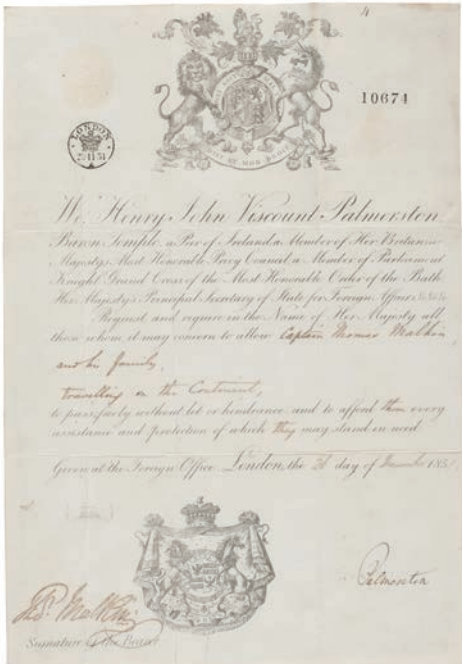 4
10674
LONDON
DIEU ET MON DROIT
We, Henry John Viscount Palmerston
Baron Temple, a Peer of Ireland, a Member of Her Britannic
Majesty's Most Honorable Privy Council, a Member of Parliament
Knight Grand Cross of the Most Honorable Order of the Bath
Her Majesty's Principal Secretary of State for Foreign Affairs &c &c &c
Request and require in the Name of Her Majesty all
those whom it may concern to allow Captain Thomas Malkin
and his family,
travelling on the Continent,
to pass freely without let or hindrance and to afford them every
assistance and protection of which they may stand in need
Given at the Foreign Office London, the day of 185
Palmerston
Thos. Malkin
Signature of the Bearer